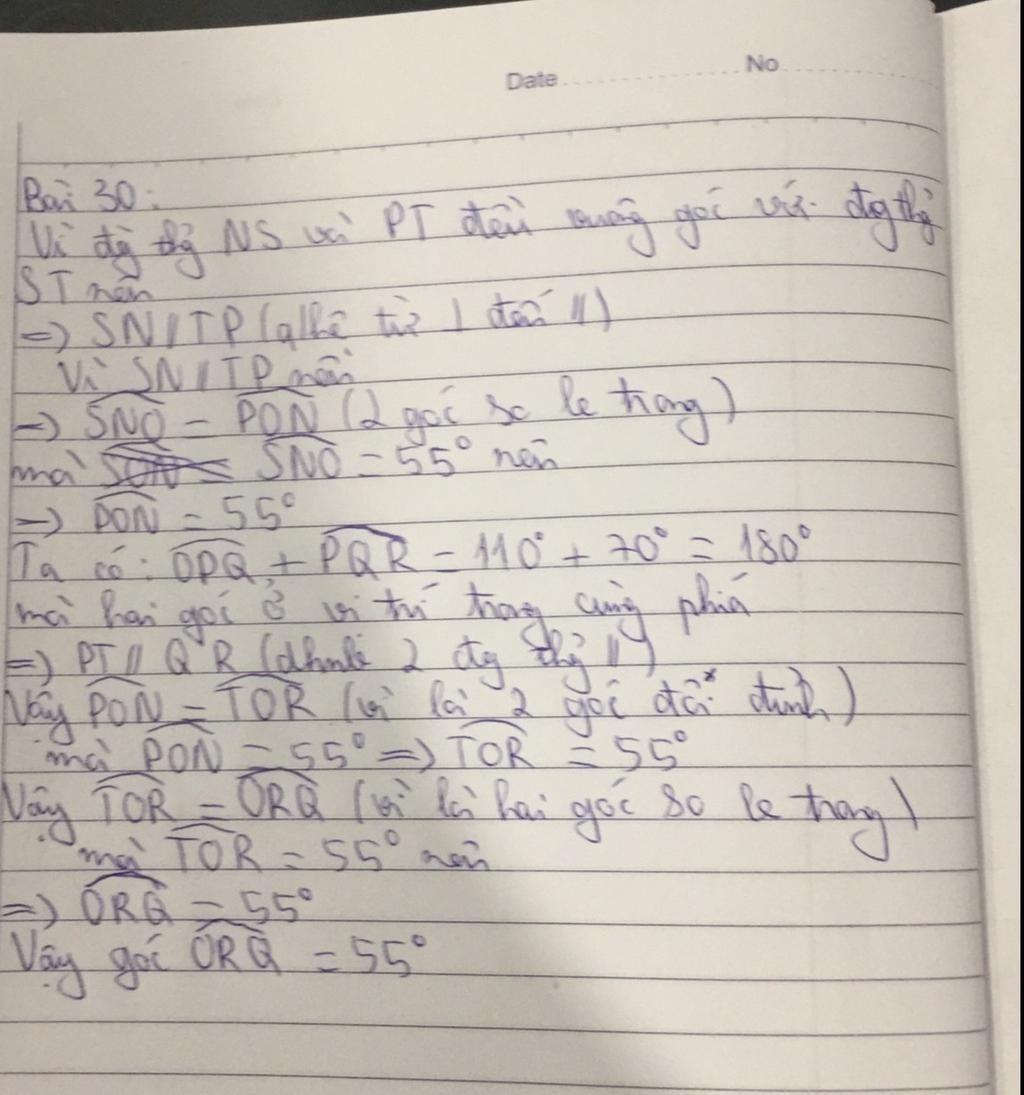 Date No
Bài 30:
Vì đg thg NS và PT đều vuông góc với đg thg
ST nên
=> SN // TP (q/hệ từ ⊥ đến //)
Vì SN // TP nên
=> SNO = PON (2 góc so le trong)
mà SNO = 55° nên
=> PON = 55°
Ta có: OPQ + PQR = 110° + 70° = 180°
mà hai góc ở vị trí trong cùng phía
=> PT // QR (dhnb 2 đg thg //)
Vậy PON = TOR (vì là 2 góc đối đỉnh)
mà PON = 55° => TOR = 55°
Vậy TOR = ORQ (vì là hai góc so le trong)
mà TOR = 55° nên
=> ORQ = 55°
Vậy góc ORQ = 55°